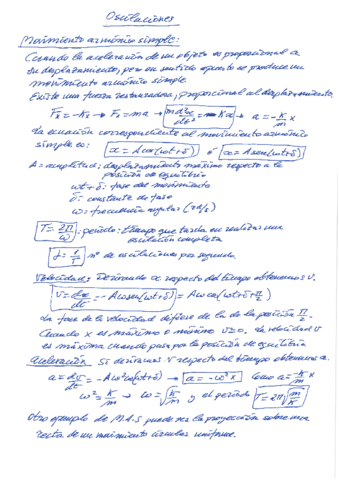 Oscilaciones
Movimiento armónico simple:
Cuando la aceleración de un objeto es proporcional a
su desplazamiento, pero en sentido opuesto se produce un
movimiento armónico simple.
Existe una fuerza restauradora, proporcional al desplazamiento.
Fx = -Kx → Fx = ma → m d²x/dt² = -Kx → a = -K/m x
La ecuación correspondiente al movimiento armónico
simple es: x = A cos(ωt+δ) ó x = A sen(ωt+δ)
A = amplitud: desplazamiento máximo respecto a la
posición de equilibrio
ωt+δ: fase del movimiento
δ = constante de fase
ω = frecuencia angular (rad/s)
T = 2π/ω : periodo: tiempo que tarda en realizar una
oscilación completa
f = 1/T nº de oscilaciones por segundo
Velocidad: Derivando x respecto del tiempo obtenemos v.
v = dx/dt = -Aω sen(ωt+δ) = Aω cos(ωt+δ+π/2)
La fase de la velocidad difiere de la de la posición π/2
Cuando x es máximo o mínimo v=0. La velocidad v
es máxima cuando pasa por la posición de equilibrio
Aceleración Si derivamos v respecto del tiempo obtenemos a.
a = dv/dt = -Aω² cos(ωt+δ) → a = -ω² x Como a = -K/m x
ω² = K/m → ω = √K/m y el periodo T = 2π√m/K
Otro ejemplo de M.A.S puede ser la proyección sobre una
recta de un movimiento circular uniforme.